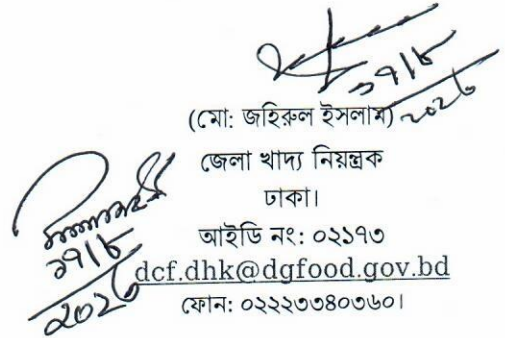 ১৭/৮
২০২৫
(মো: জহিরুল ইসলাম)
জেলা খাদ্য নিয়ন্ত্রক
ঢাকা।
আইডি নং: ০২১৭৩
dcf.dhk@dgfood.gov.bd
ফোন: ০২২২৩৩৪০৩৬০।
১৭/৮